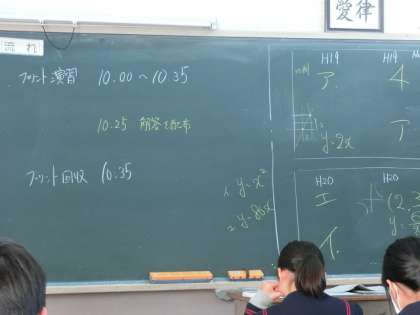 愛律
流れ
プリント演習 10.00～10.35
10.25 解答を配布
プリント回収 10:35
H19
ア.
H19
イ
y=2x
ア
1, y=x²
2 y=80x
H20
エ
イ.
H20
(2,3
y=